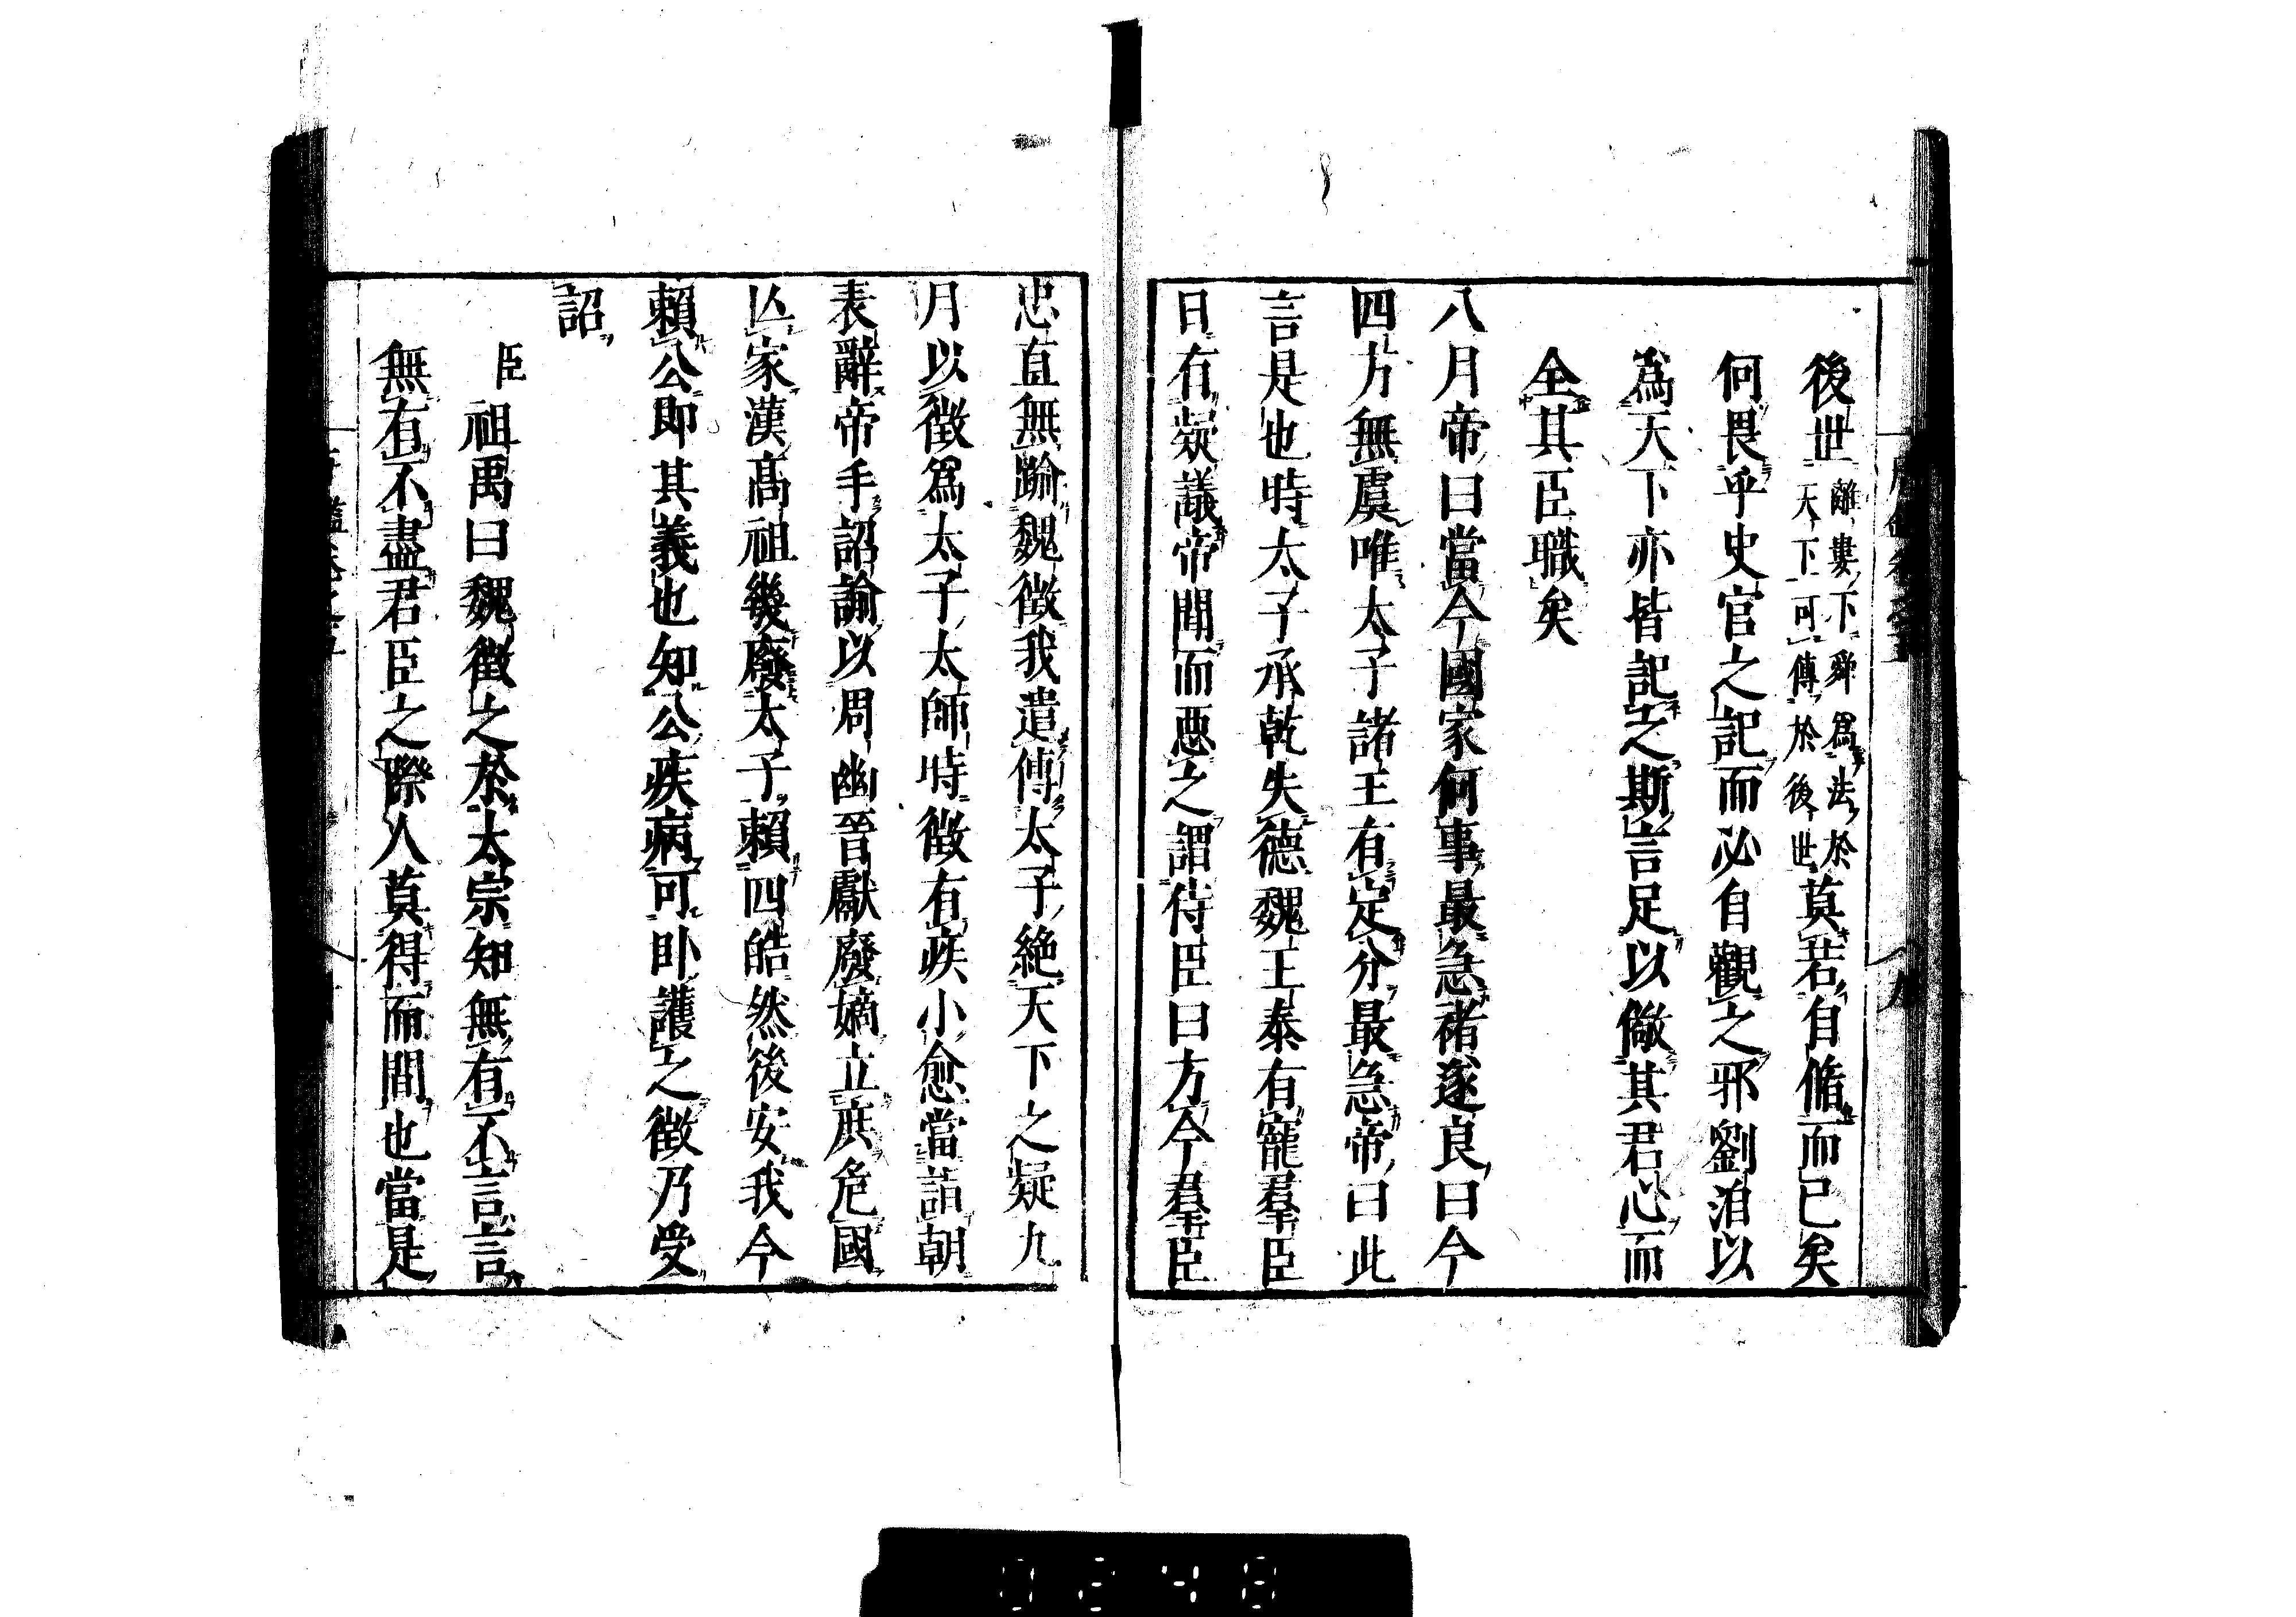 後世離婁下舜爲法於天下可傳於後世莫若自脩而已矣
何畏乎史官之記而必自觀之邪劉洎以
爲天下亦皆記之斯言足以儆其君心而
全其臣職矣
八月帝曰當今國家何事最急褚遂良曰今
四方無虞唯太子諸王有定分最急帝曰此
言是也時太子承乾失德魏王泰有寵羣臣
日有疑議帝聞而惡之謂侍臣曰方今羣臣
忠直無踰魏徵我遣傅太子絶天下之疑九
月以徵爲太子太師時徵有疾小愈當詣朝
表辭帝手詔諭以周幽晉獻廢嫡立庶危國
亾家漢髙祖幾廢太子賴四皓然後安我今
賴公即其義也知公疾病可卧護之徵乃受
詔
臣祖禹曰魏徵之於太宗知無有不言言
無有不盡君臣之際人莫得而間也當是